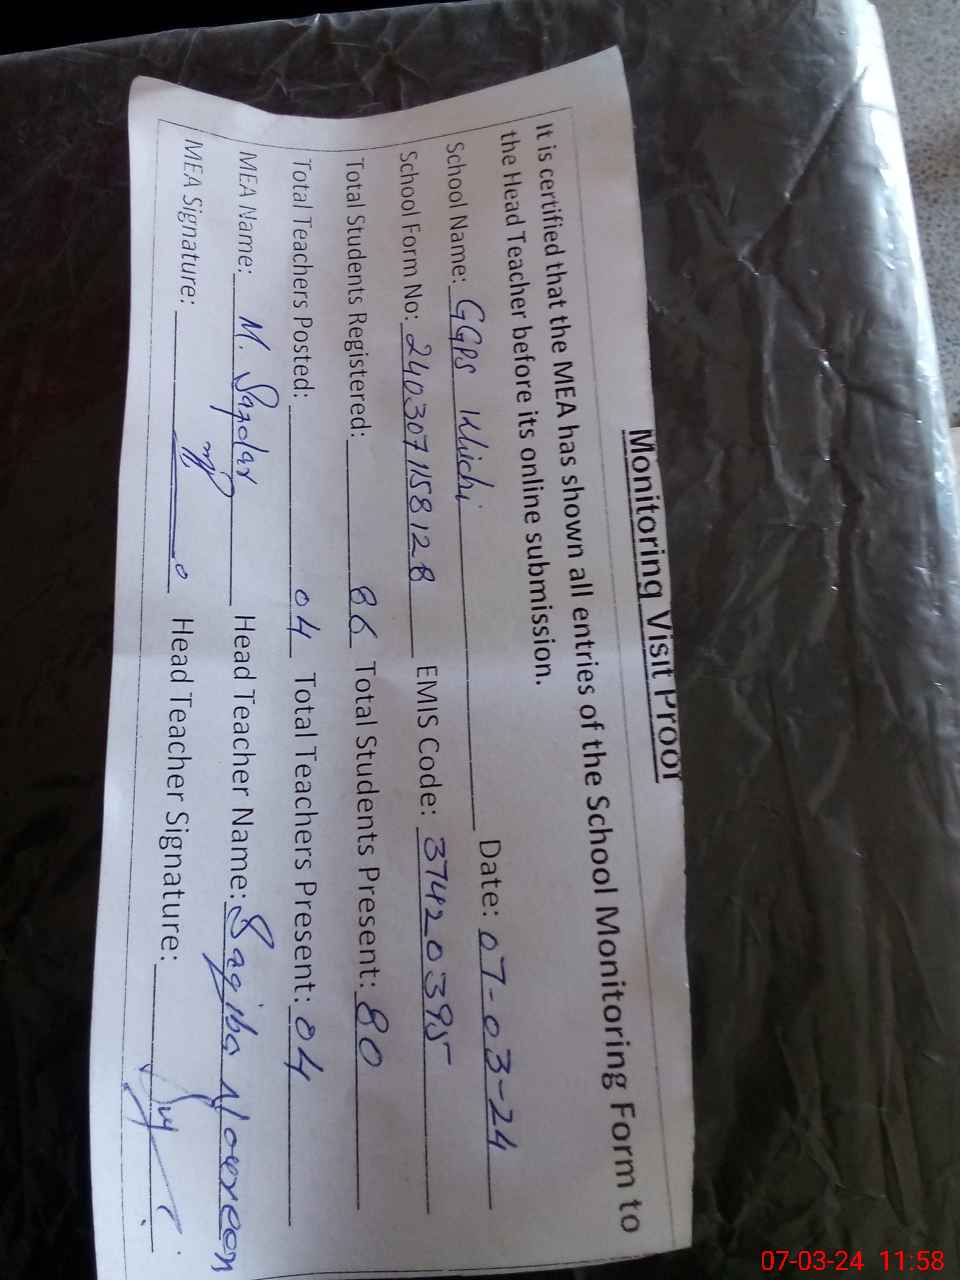 Monitoring Visit Proof
It is certified that the MEA has shown all entries of the School Monitoring Form to
the Head Teacher before its online submission.
School Name: GGPS Khichi Date: 07-03-24
School Form No: 240307115812 8 EMIS Code: 37420395
Total Students Registered: 86 Total Students Present: 80
Total Teachers Posted: 04 Total Teachers Present: 04
MEA Name: M. Safdar Head Teacher Name: Saqiba Noureen
MEA Signature: Head Teacher Signature:
07-03-24 11:58